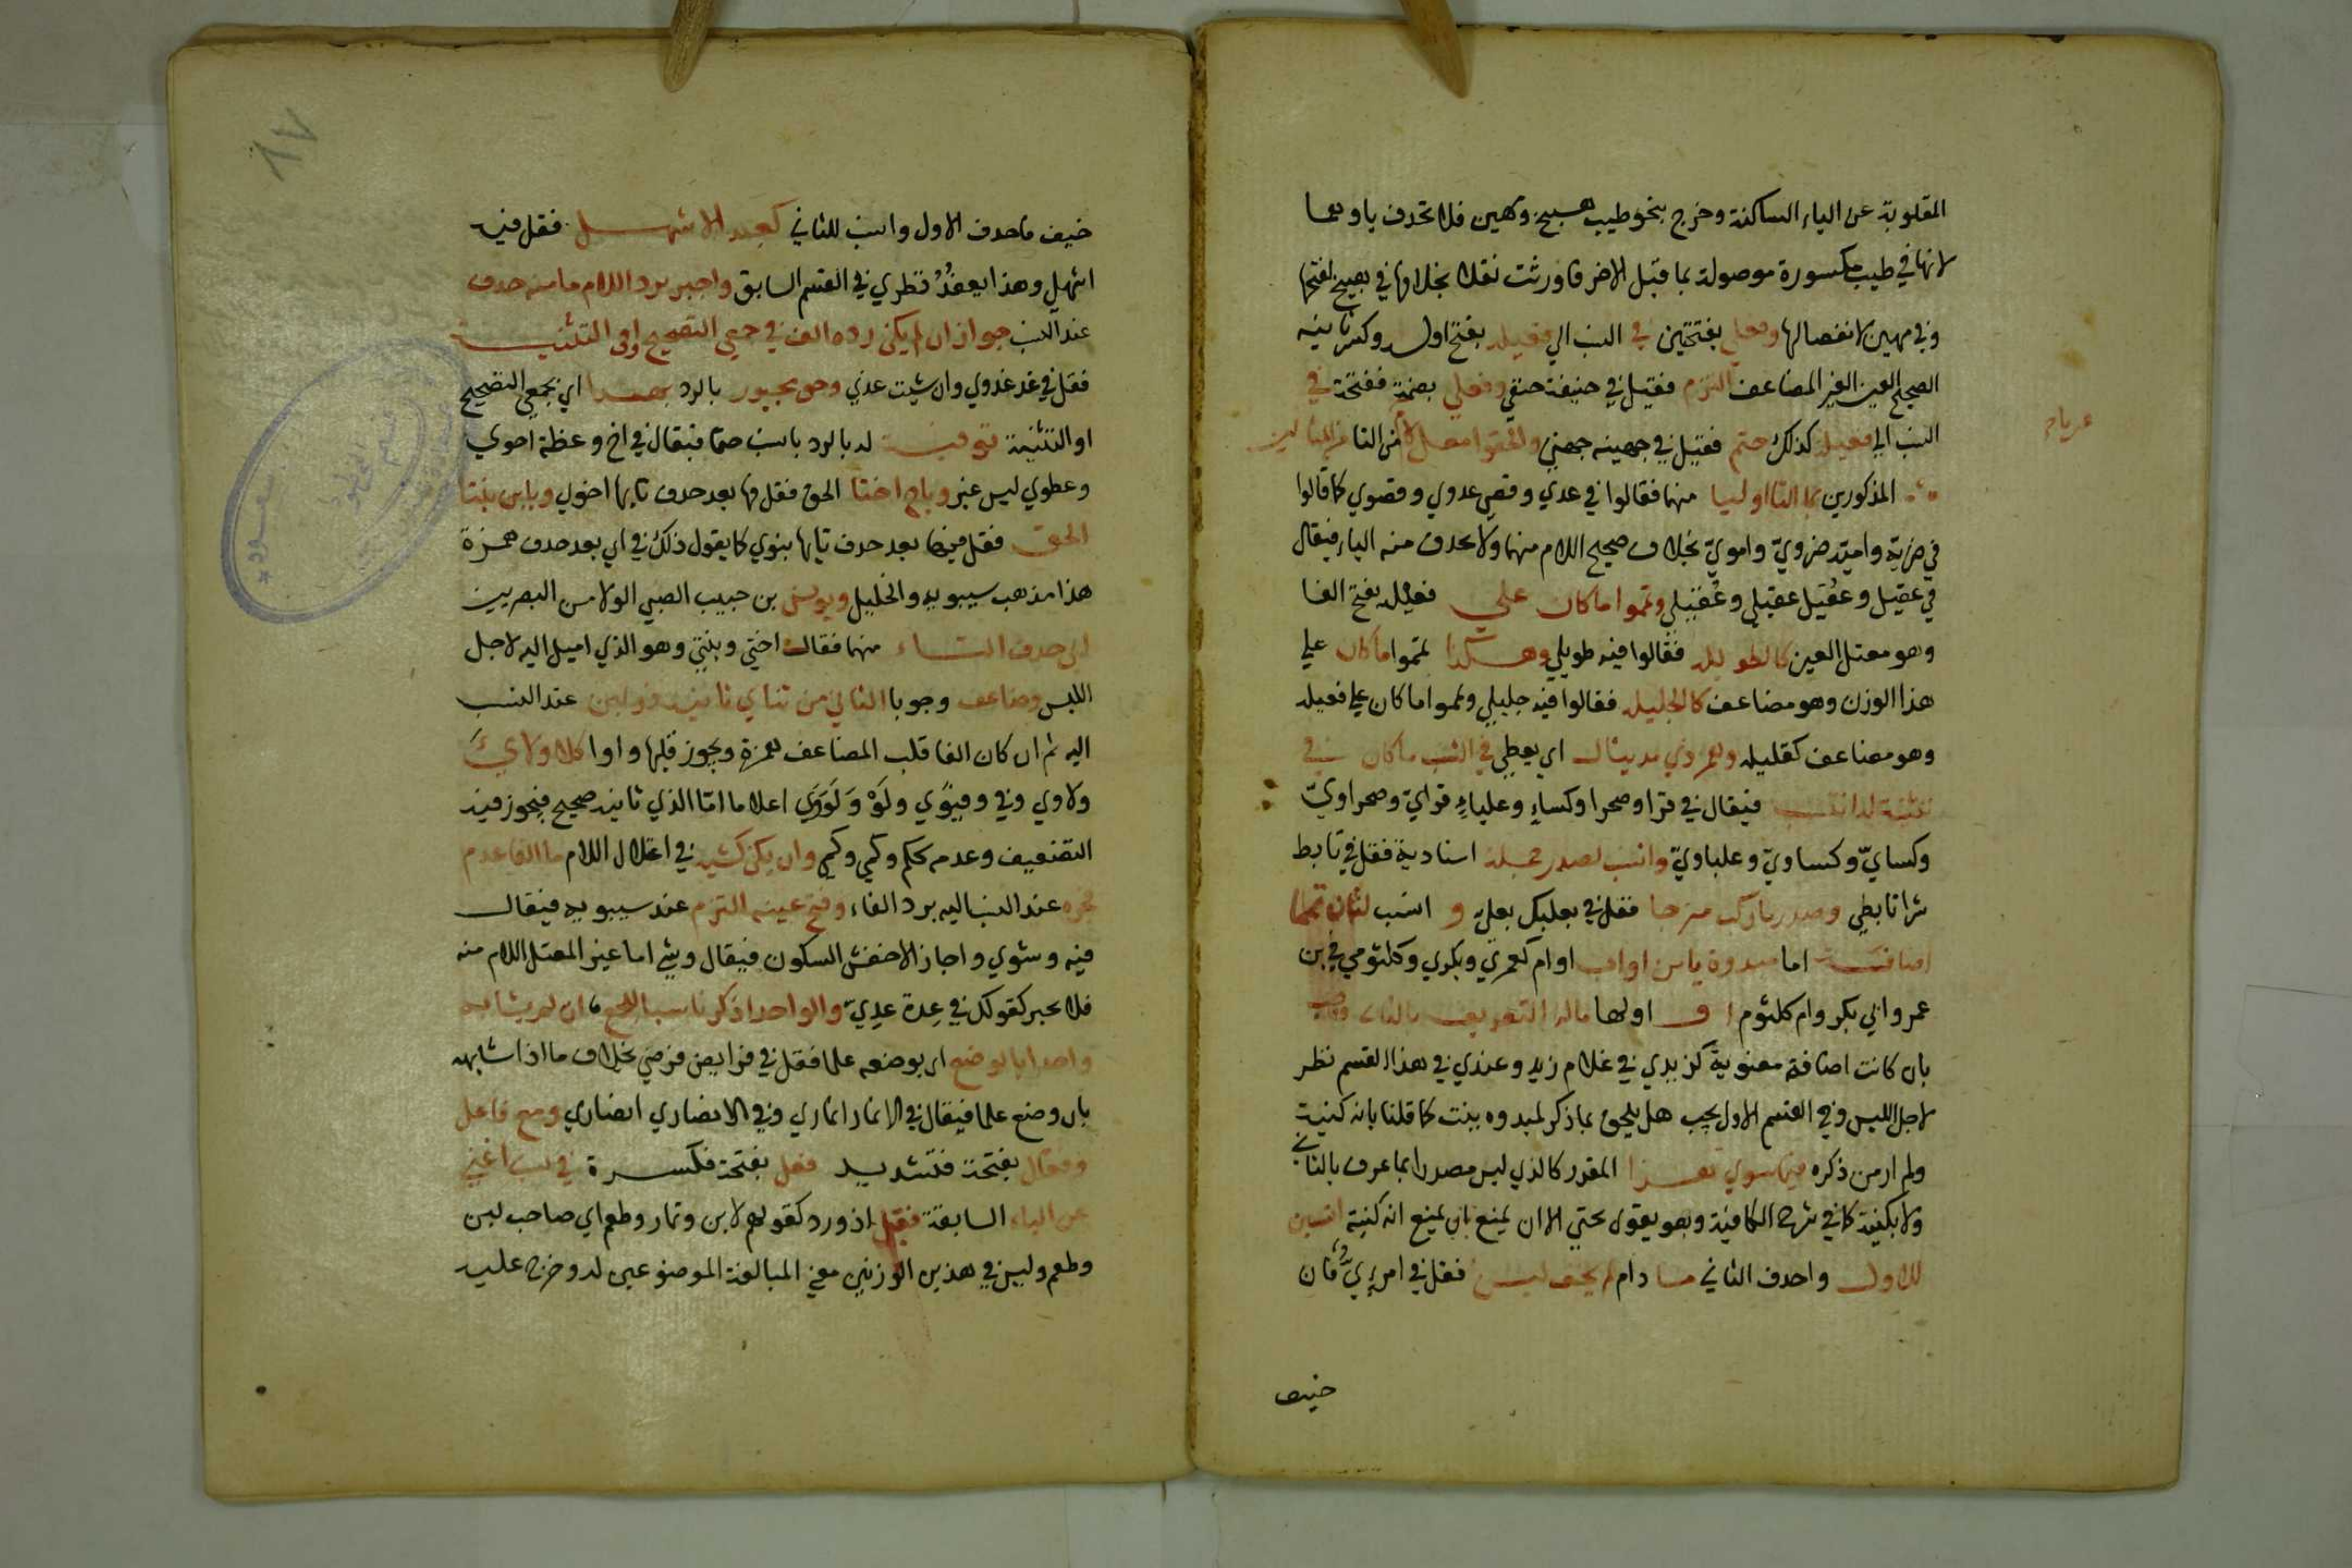 المقلوبة عن الياء الساكنة وخرج بنحو طيب هبيخ ومهين فلا تحذف ياوهما
لانها في طيب مكسورة موصولة بما قبل الاخر فاورثت نقلا بخلافها في هبيخ لفتحها
وفي مهين لانفصالها وفعلي بفتحتين في النسب الي فعيلة بفتح اوله وكسر ثانيه
الصحيح العين الغير المضاعف التزم فقيل في حنيفة حنفي وفعلي بضمة ففتحة في
النسب الي فعيلة كذلك حتم فقيل في جهينه جهني والحقوا معل لام من التا
عريا
المذكورين بما التا اوليا منهما فقالوا في عدي وقصي عدوي وقصوي كما قالوا
في ضرية وامية ضروي واموي بخلاف صحيح اللام منهما ولا تحذف منه الياء فيقال
في عقيل وعقيل عقيلي وعقيلي وتمموا ما كان علي فعيلة بفتح الفا
وهو معتل العين كالطويلة فقالوا فيه طويلي وهكذا تمموا ما كان علي
هذا الوزن وهو مضاعف كالجليلة فقالوا فيه جليلي وتمموا ما كان علي فعيلة
وهو مضاعف كقليله وهمز ذي مد ينال اي يعطي في النسب ما كان في
تثنية له انتسب فيقال في قرا وصحرا وكساء وعلباء قرائي وصحراوي
وكسائي وكساوي وعلباوي وانسب لصدر جملة اسنادية فقل في تابط
شرا تابطي وصدر ما ركب مزجا فقل في بعلبك بعلي و انسب لثان تمما
اضافة اما مبدوة بابن او اب او ام كعمري وبكري وكلثومي في بن
عمرو ابي بكر وام كلثوم او اولها ماله التعريف بالثاني وجب
بان كانت اضافة معنوية كزيدي في غلام زيد وعندي في هذا القسم نظر
لاجل اللبس وفي القسم الاول يجب هل يلحق بما ذكر لمبدوه ببنت كما قلنا بانه كنية
ولم ار من ذكره فيما سوي هذا المقدر كالذي ليس مصدرا بما عرف بالثاني
ولا بكنية كما في شرح الكافية وهو يقوي بحثي الا ان يمنع بان يمنع انه كنية انسبن
للاول واحذف الثاني ما دام لم يخف لبس فقل في امرئي فان
خيف
خيف فاحذف الاول وانسب للثاني كعبد الاشهل فقل فيه
اشهلي وهذا يعضد نظري في القسم السابق واجبر برد اللام ما منه حذف
عند النسب جوازا ان لم يكن رده الف في جمعي التصحيح او في التثنية
فقل في غد غدوي وان شيت غدي وحق مجبور بالرد بهذا اي بجمعي التصحيح
او التثنية توفية له بالرد بالنسب حتما فيقال في اخ وعظة اخوي
وعظوي ليس غير وباخ اختا الحق فقل فيها بعد حذف تايها اخوي وبابن بنتا
الحق فقل فيها بعد حذف تايها بنوي كما يقول ذلك في ابن بعد حذف همزة
هذا مذهب سيبويه والخليل ويونس بن حبيب الضبي الولا من البصريين
ابي حذف التاء منهما فقال اختي وبنتي وهو الذي اميل اليه لاجل
اللبس وضاعف وجوبا الثاني من ثنائي ثانيه ذو لين عند النسب
اليه ثم ان كان الفا قلب المضاعف همزة ويجوز قلبها واوا كلا ولائي
ولاوي وفي وفيوي ولو ولووي اعلاما اما الذي ثانيه صحيح فيجوز فيه
التضعيف وعدمه ككم وكمي وكمي وان يكن كشية في اعتلال اللام ما الفا عدم
فجبره عند النسب اليه برد الفاء وفتح عينه التزم عند سيبويه فيقال
فيه وشوي واجاز الاخفش السكون فيقال وشيي اما غير المعتل اللام منه
فلا يجبر كقولك في عدة عدي والواحد اذكر ناسبا للجمع ان لم يشابه
واحدا بالوضع اي بوضعه علما فقل في فرايض فرضي بخلاف ما اذا شابهه
بان وضع علما فيقال في الانمار انماري وفي الانصاري انصاري ومع فاعل
وفعال بفتحة فتشديد فعل بفتحة فكسرة في نسب اغني
عن الياء السابقة فقبل اذ ورد كقولهم لابن وتمار وطعم اي صاحب لبن
وطعم وليس في هذين الوزنين معني المبالغة الموضوعين له وخرج عليه